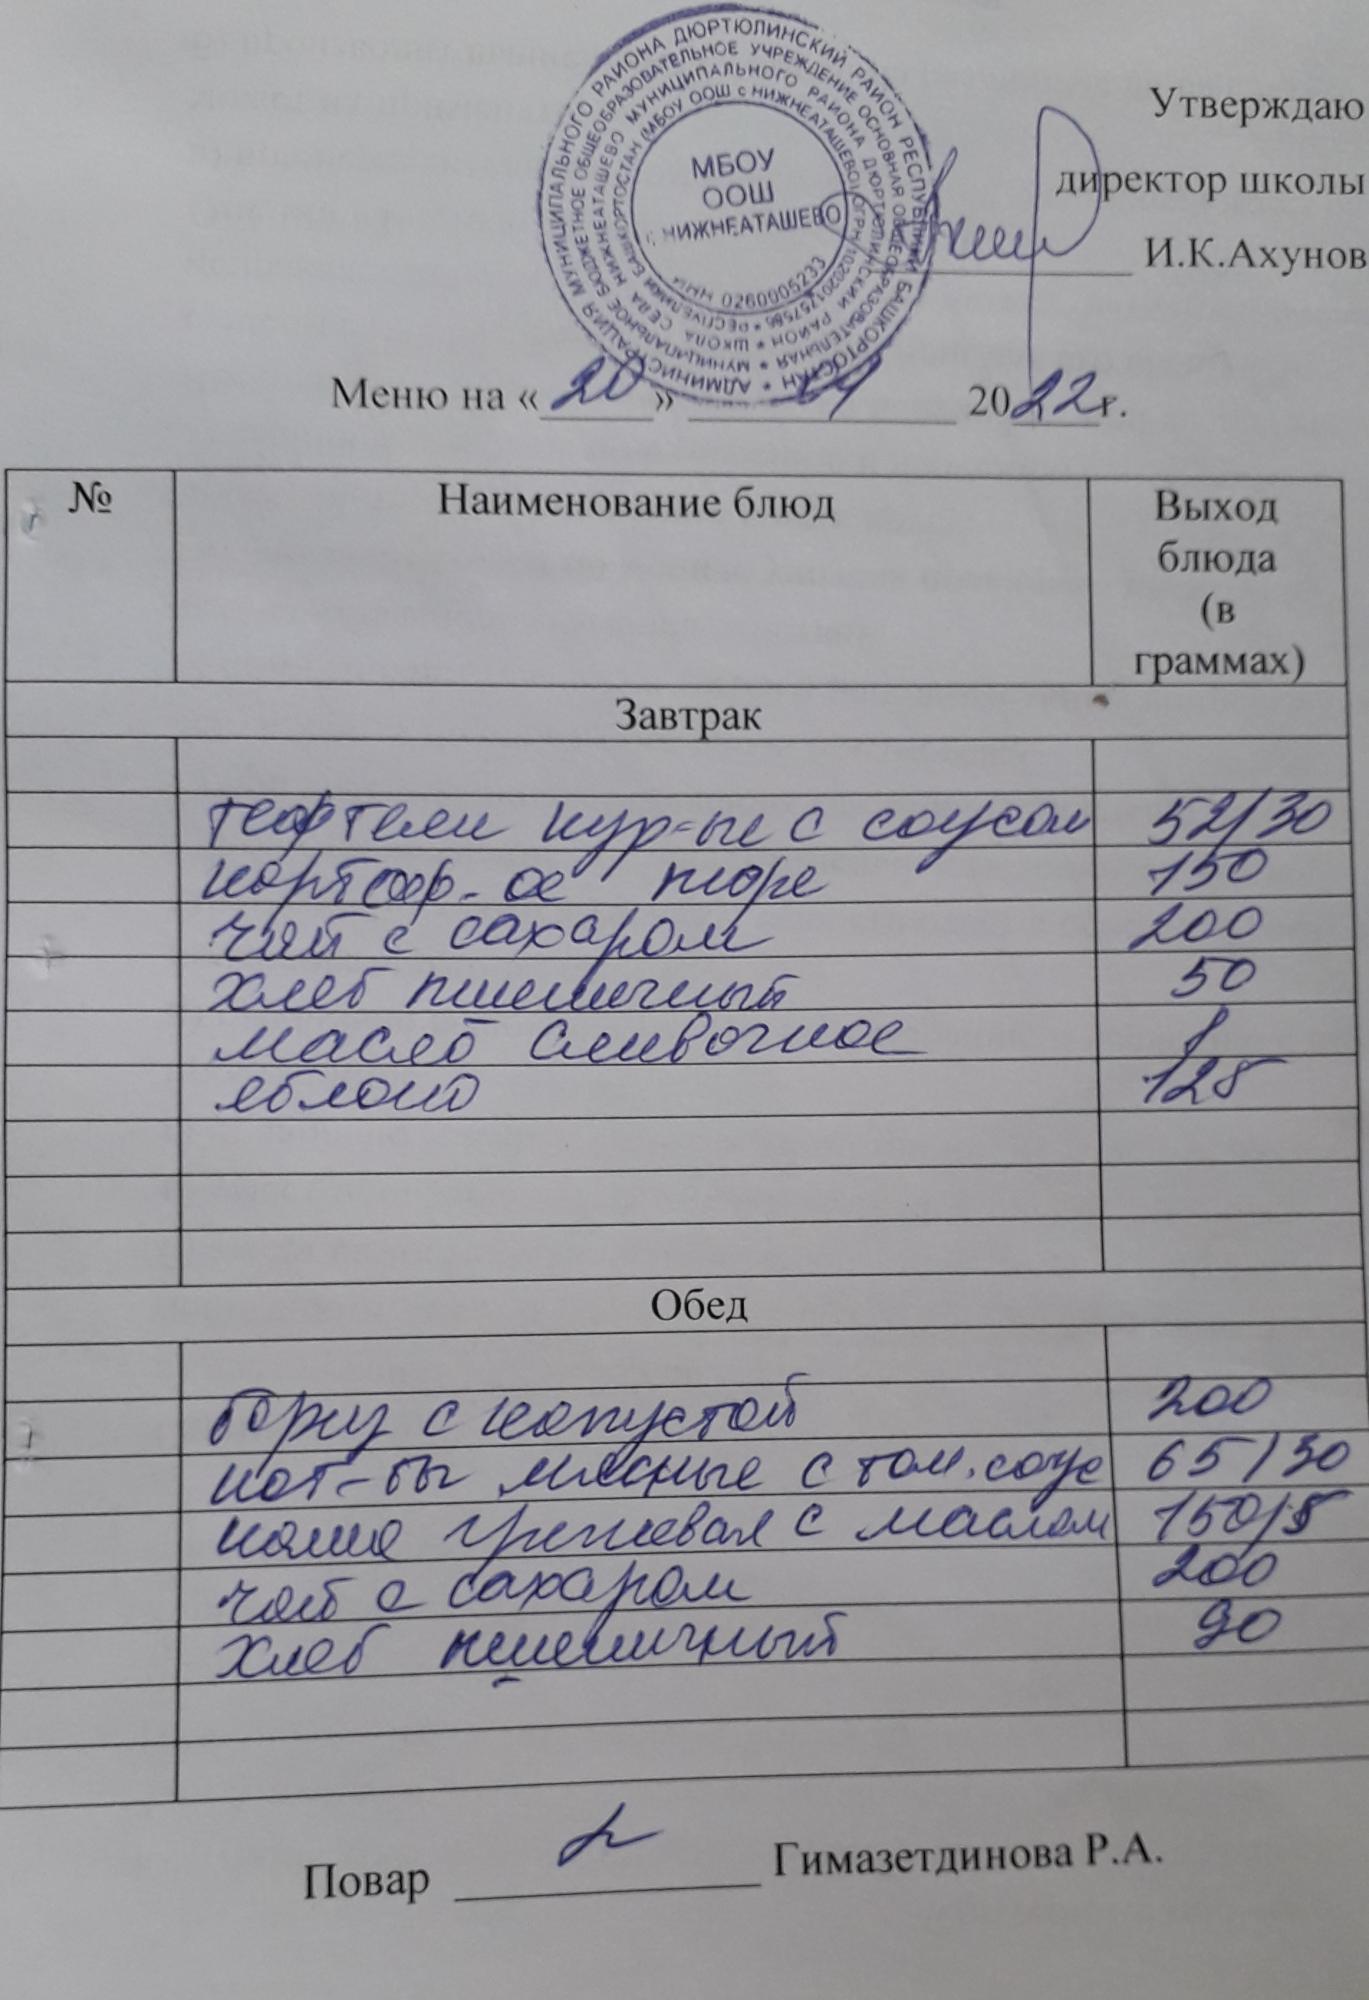 АДМИНИСТРАЦИЯ МУНИЦИПАЛЬНОГО РАЙОНА ДЮРТЮЛИНСКИЙ РАЙОН РЕСПУБЛИКИ БАШКОРТОСТАН *
МУНИЦИПАЛЬНОЕ БЮДЖЕТНОЕ ОБЩЕОБРАЗОВАТЕЛЬНОЕ УЧРЕЖДЕНИЕ ОСНОВНАЯ ОБЩЕОБРАЗОВАТЕЛЬНАЯ *
ШКОЛА СЕЛА НИЖНЕАТАШЕВО МУНИЦИПАЛЬНОГО РАЙОНА ДЮРТЮЛИНСКИЙ РАЙОН *
РЕСПУБЛИКИ БАШКОРТОСТАН (МБОУ ООШ с НИЖНЕАТАШЕВО) ОГРН 1020201757586 *
МБОУ
ООШ
с. НИЖНЕАТАШЕВО
ИНН 0260005233
Утверждаю
директор школы
И.К.Ахунов
Меню на «20» 2022г.
№ Наименование блюд Выход
блюда
(в
граммах)
Завтрак
тефтели кур-ые с соусом 52/30
картоф-ое пюре 150
чай с сахаром 200
хлеб пшеничный 50
масло сливочное 8
яблоко 128
Обед
борщ с капустой 200
кот-ты мясные с том. соус 65/30
каша гречневая с маслом 150/5
чай с сахаром 200
хлеб пшеничный 90
Повар Гимазетдинова Р.А.